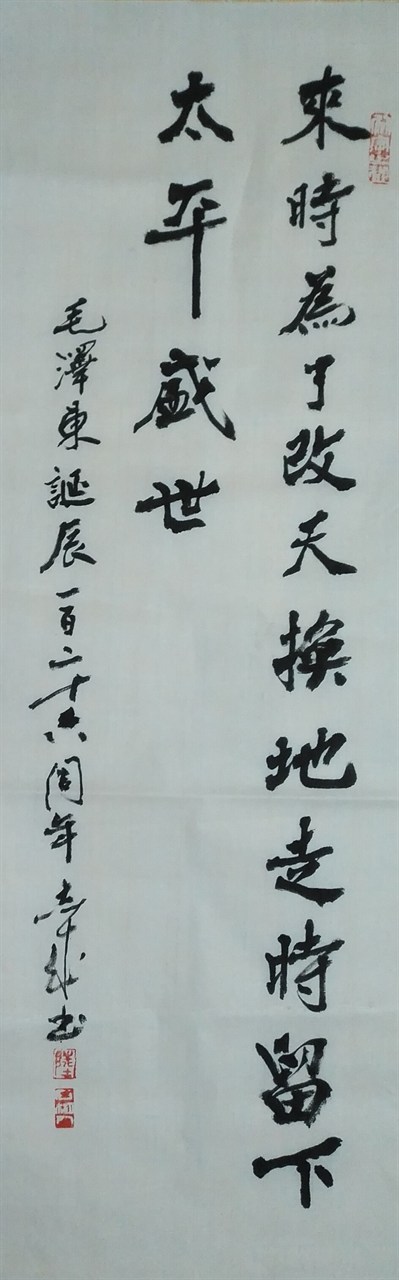 來時為了改天換地走時留下
太平盛世
毛澤東誕辰一百二十六周年 书